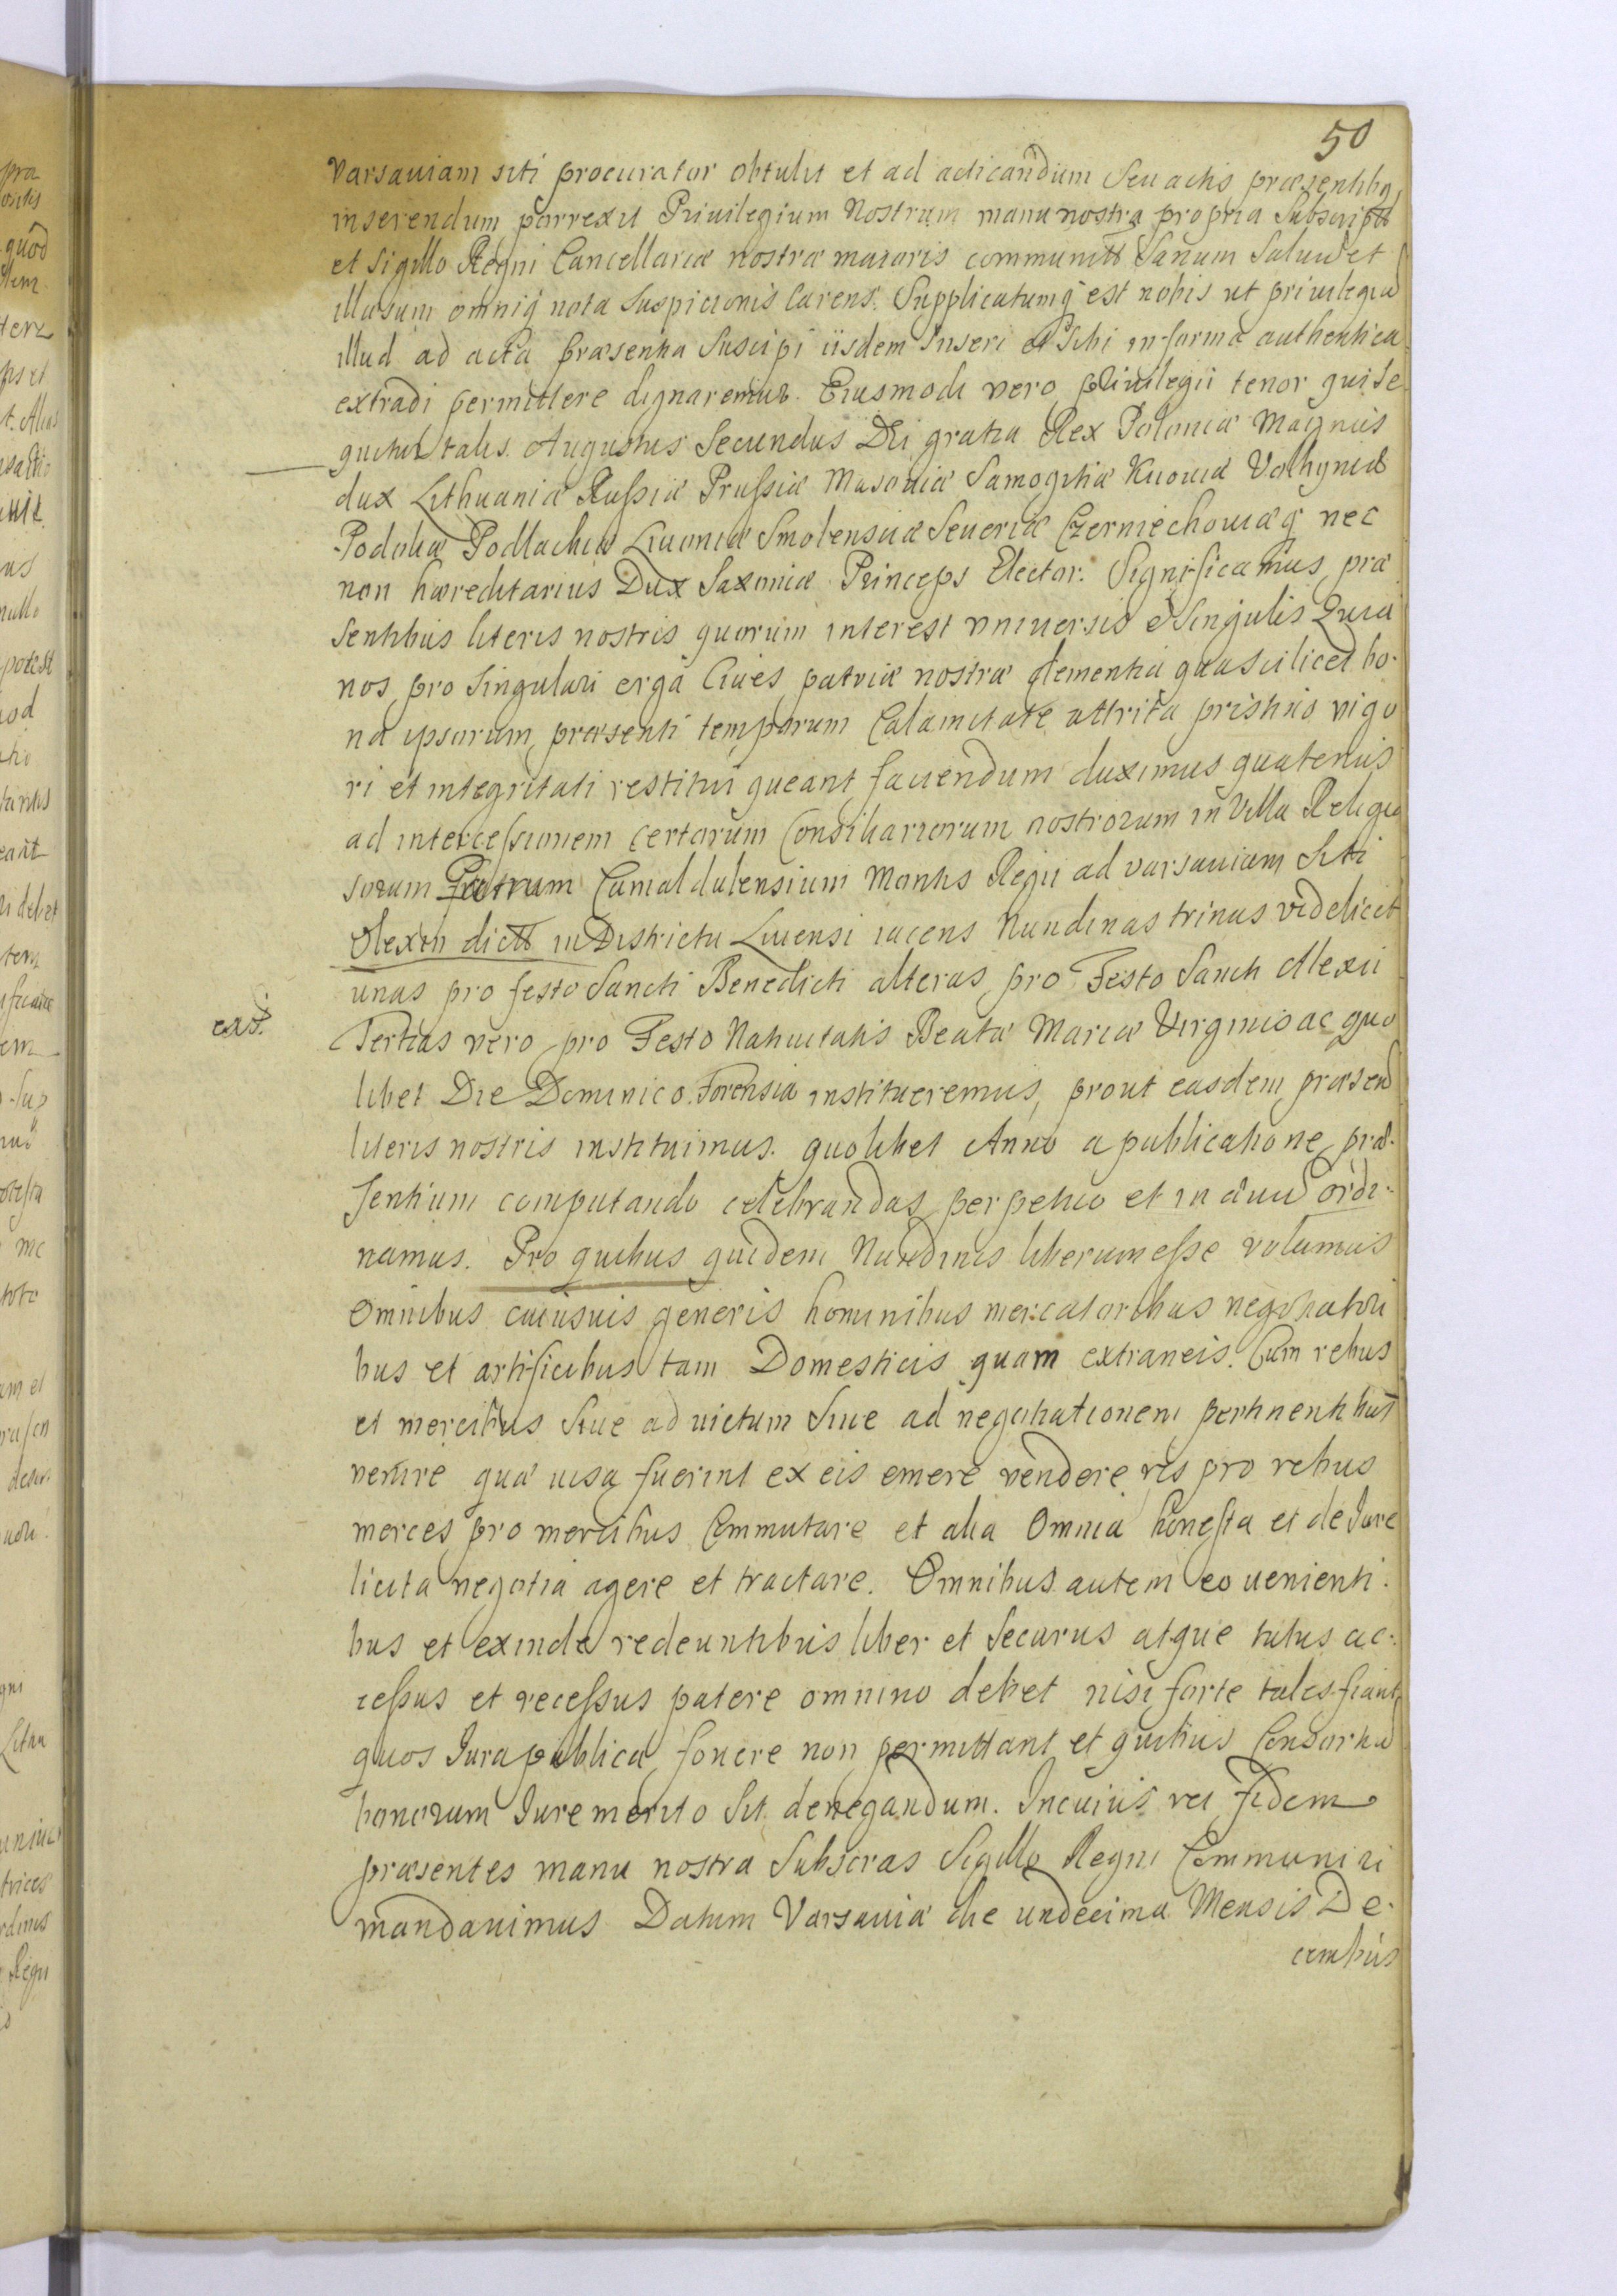 50
Varsaviam siti procurator obtulit et ad acticandum Seu actis præsentibq
inserendum porrexit Priuilegium Nostrum manu nostra propria Subscript
et Sigillo Regni Cancellariæ nostræ maioris communitt Sanum Saluū et
illæsum omniq nota Suspicionis Carens. Supplicatumq est nobis ut priuilegiū
illud ad acta præsentia Suscipi iisdem Inseri et Sibi in forma authentica
extradi permittere dignaremur. Eiusmodi vero priuilegii tenor qui Se
quitur talis. Augustus Secundus Dei gratia Rex Poloniæ Magnus
dux Lithuaniæ Russiæ Prussiæ Masoviæ Samogitiæ Kiioviæ Volhyniæ
Podoliæ Podlachiæ Livoniæ Smolensciæ Severiæ Czerniechoviæq nec
non hæreditarius Dux Saxoniæ Princeps Elector. Significamus præ
Sentibus literis nostris quorum interest vniversis et Singulis Quia
nos pro Singulari erga Ciues patriæ nostræ clementia qua scilicet bo-
na ipsorum præsenti temporum Calamitate attrita pristino vigo
ri et integritati restitui queant faciendum duximus quatenus
ad intercessionem certorum Consiliariorum nostrorum in Villa Religio
sorum Patrum Camaldulensium Montis Regii ad varsauiam Siti
Olexin dictt in Districtu Liuensi iacens Nundinas trinas videlicet
unas pro festo Sancti Benedicti alteras pro Festo Sancti Alexii
Tertias vero pro Festo Natiuitatis Beatæ Mariæ Virginis ac quo
libet Die Dominico Forensia institueremus, prout easdem præsen
literis nostris instituimus. quolibet Anno a publicatione præ-
sentium computando celebrandas perpetuo et in æuū ordi-
namus. Pro quibus quidem Nundinis liberum esse volumus
Omnibus cuiusuis generis hominibus mercatoribus negotiatori
bus et artificibus tam Domesticis quam extraneis. Cum rebus
et mercibus Siue ad uictum Siue ad negotiationem pertinentibus
venire quæ uisa fuerint ex eis emere vendere res pro rebus
merces pro mercibus Commutare et alia Omnia honesta et de Jure
licita negotia agere et tractare. Omnibus autem eo uenienti-
bus et exinde redeuntibus liber et Securus atque tutus ac-
cessus et recessus patere omnino debet nisi forte tales fiant
quos Jura publica fouere non permittant et quibus Consortiū
bonorum Jure merito Sit denegandum. In cuius rei fidem
præsentes manu nostra Subscras Sigillo Regni Communiri
mandauimus Datum Varsauiæ die undecima Mensis De-
cembris